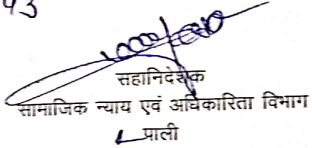 93
सहानिदेशक
सामाजिक न्याय एवं अधिकारिता विभाग
पाली